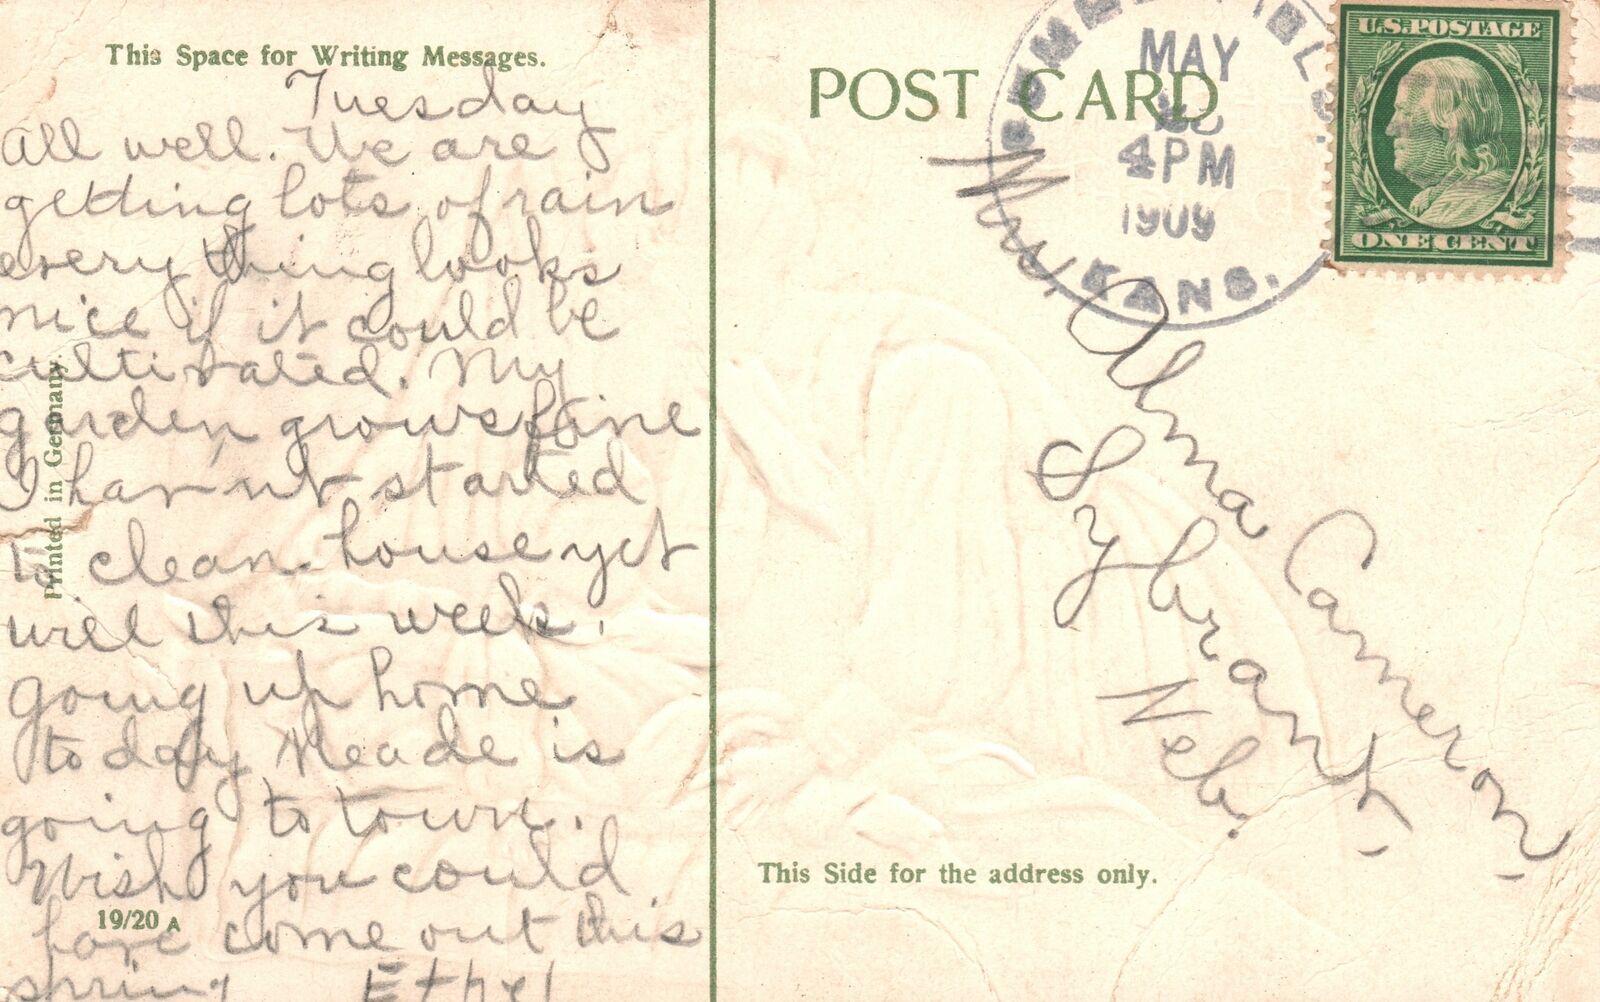 This Space for Writing Messages.
Tuesday
All well. We are
getting lots of rain
every thing looks
nice if it could be
cultivated. My
garden grows fine
I hav'nt started
to clean house yet
will this week.
going up home
to day Meade is
going to town.
Wish you could
come out this
spring Ethel
Printed in Germany.
19/20 A
POST CARD
MAY
4 PM
1909
KANS.
U.S. POSTAGE
ONE CENT
Mrs. Alma Cameron,
Sybrant,
Neb.
This Side for the address only.